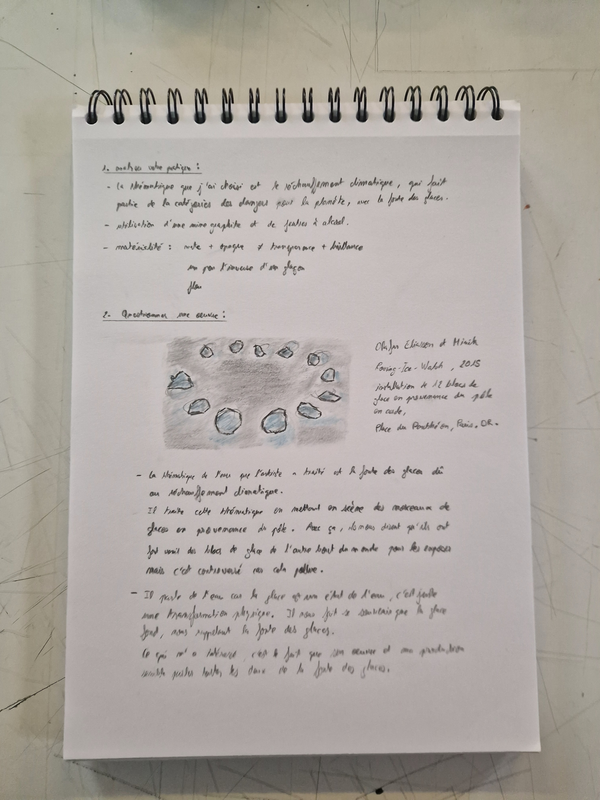 1. analyser votre pratique :
- La thématique que j'ai choisi est le réchauffement climatique, qui fait
partie de la catégories des dangers pour la planète, avec la fonte des glaces.
- utilisation d'une mine graphite et de feutres à alcool.
- matérialité : mate + opaque ≠ transparence + brillance
un peu l'inverse d'un glaçon
flou
2. Questionner une œuvre :
Olafur Eliasson et Minik
Rosing-Ice-Watch, 2015
installation de 12 blocs de
glace en provenance du pôle
en cercle,
Place du Panthéon, Paris.
- La thématique de l'eau que l'artiste a traité est la fonte des glaces dû
au réchauffement climatique.
Il traite cette thématique en mettant en scène des morceaux de
glaces en provenance du pôle. Avec ça, disant qu'ils ont
fait venir des blocs de glace de l'autre bout du monde pour les exposer
mais c'est controversé car cela pollue.
- Il parle de l'eau car la glace est un état de l'eau, c'est
une transformation physique. Il nous fait se souvenir que la glace
fond, nous rappelant la fonte des glaces.
Ce qui m'a intéressé, c'est le fait que son œuvre et ma production
parler toutes les deux de la fonte des glaces.